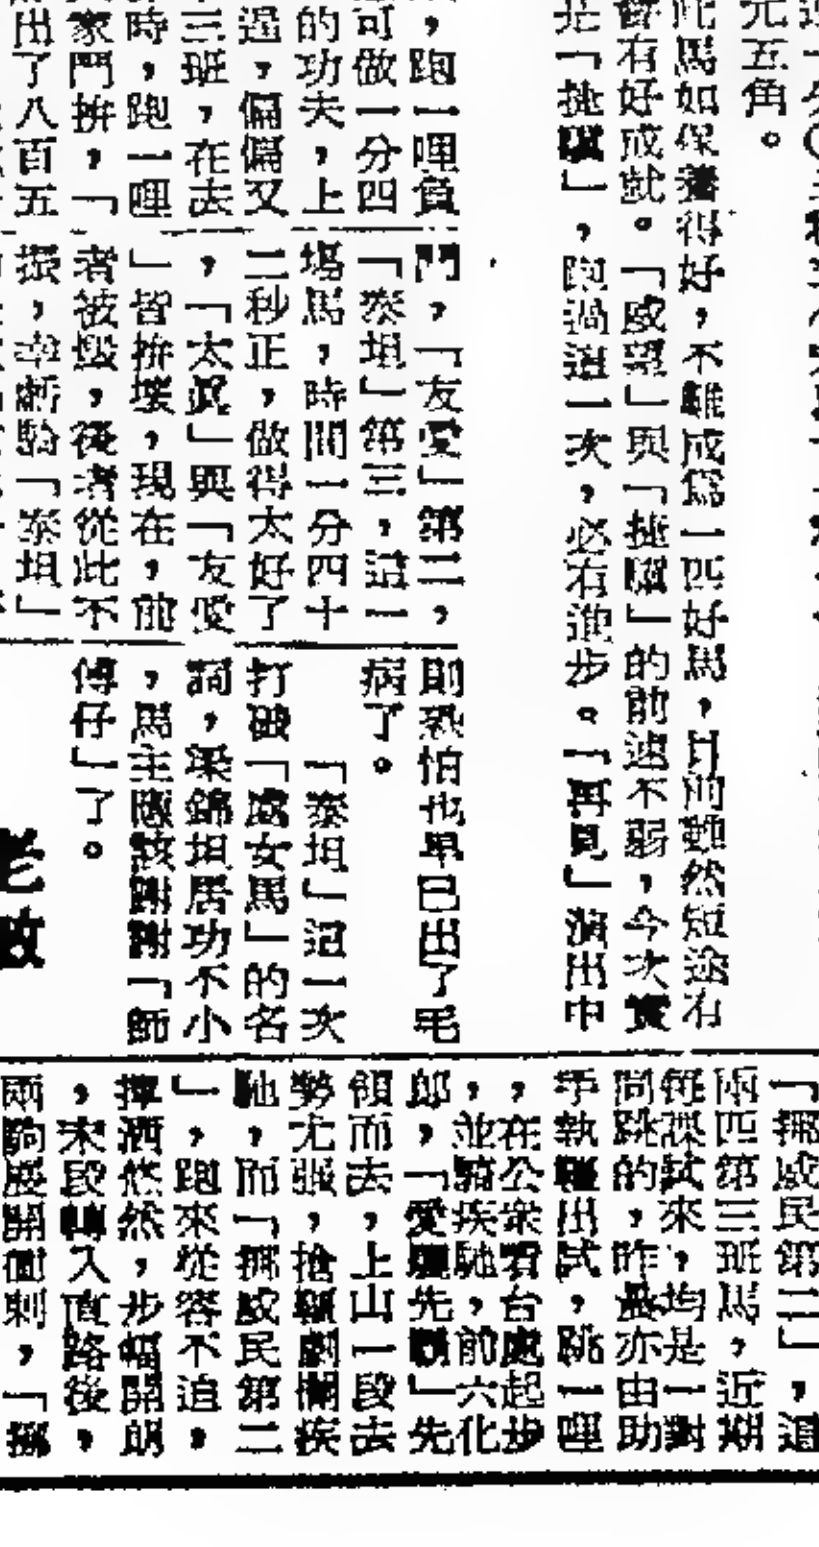 元五角。
此馬如保養得好，不難成爲一匹好馬，目前雖然短途有
會有好成就。「威望」與「捷驥」的前速不弱，今次實
是「捷驥」，跑過這一次，必有進步。「再見」演出中
，跑一哩負
可做一分四
的功夫，上
過，偏偏又
三班，在去
時，跑一哩
家鬥拚，「
出了八百五
鬥，「友愛」第二，
「泰坦」第三，這一
場馬，時間一分四十
二秒正，做得太好了
，「太眞」與「友愛
」皆拚壞，現在，前
者被毀，後者從此不
振，幸新騐「泰坦」
則恐怕也早已出了毛
病了。
「泰坦」這一次
打破「處女馬」的名
詞，梁錦坦居功不小
，馬主應該謝謝「師
傅仔」了。
老
「挪威民第二」，這
兩匹第三班馬，近期
每課試來，均是一對
同跳的，昨晨亦由助
手執韁出試，跳一哩
，在公衆看台處起步
，並騎疾馳，前六化
郎，「愛麗先鋒」先
領而去，上山一段去
勢尤張，搶韁劇欄疾
馳，而「挪威民第二
」，跑來從容不迫，
揮洒悠然，步幅開朗
，末段轉入直路後，
兩駒展開衝刺，「挪